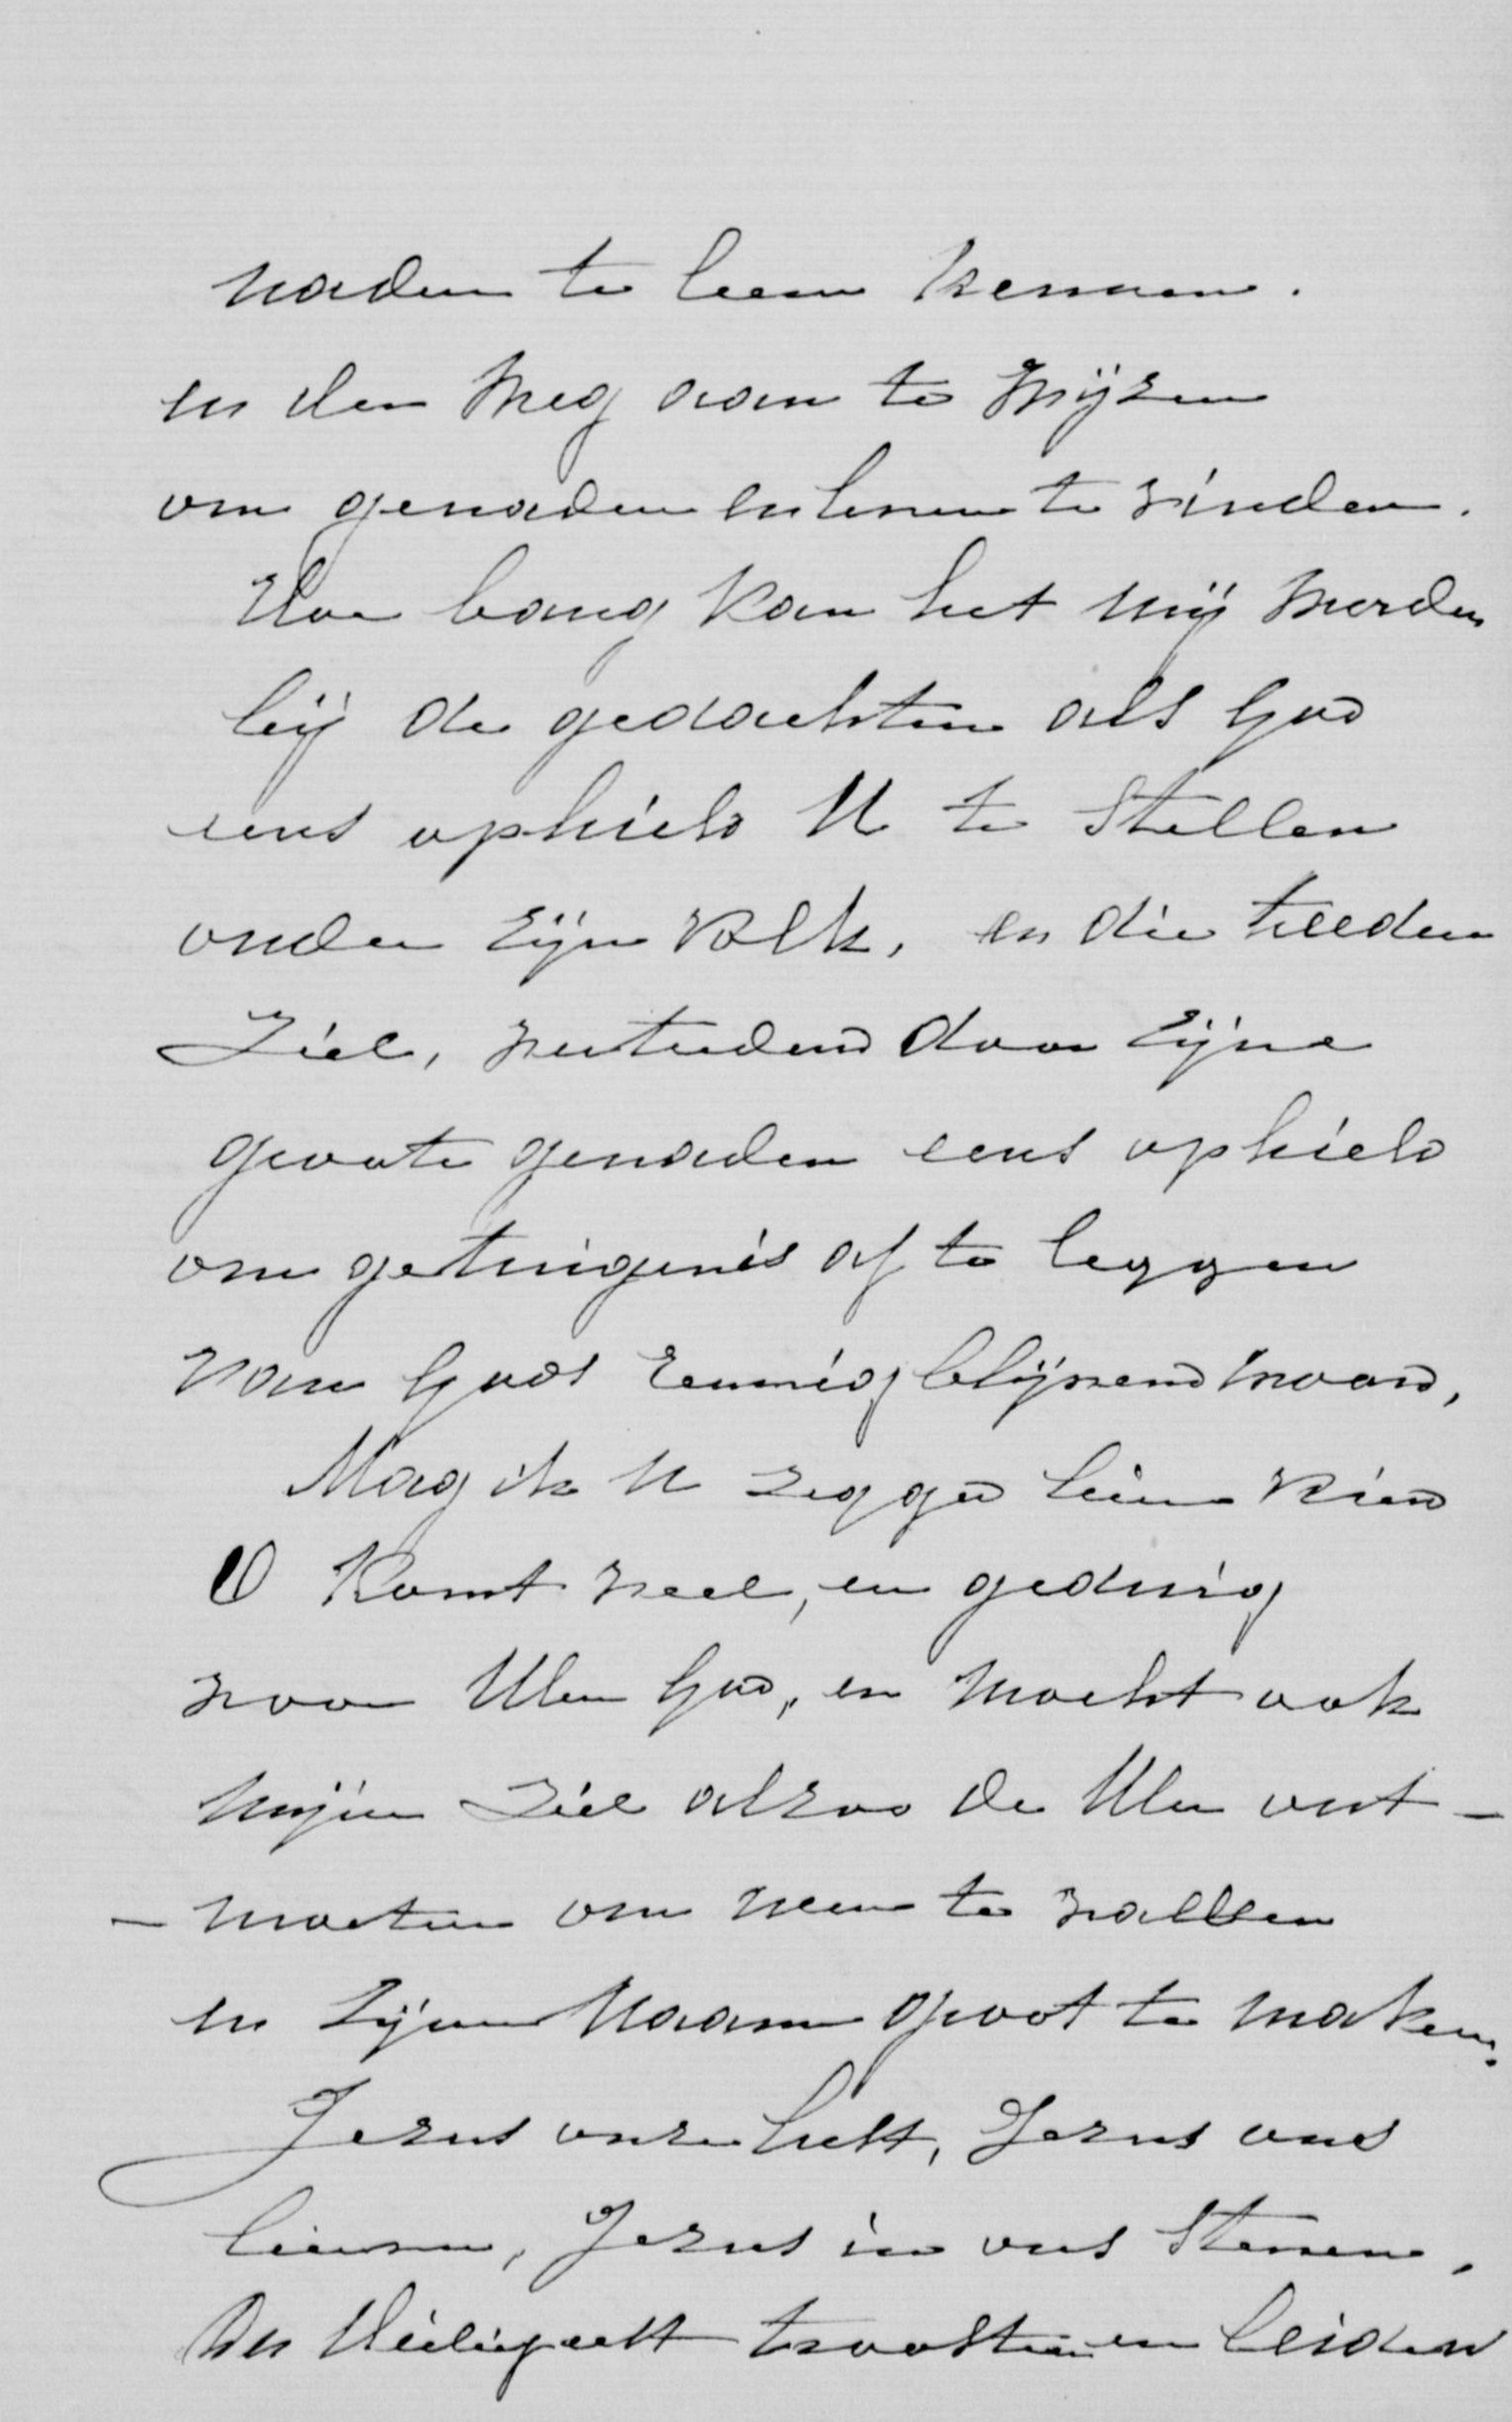 naden te leeren kennen.
en den Weg aan te Wijzen
om genaden en leven te vinden.
Hoe bang kan het mij worden
bij de gedachten als God
eens ophield U te stellen
onder Zijn Volk, en die
Ziel, door Zijne
groote genaden eens ophield
om getuigenis af te leggen
van Gods Eeuwig blijvend woord,
Mag ik U zeggen lieve kind
O komt veel, en gedurig
voor Uwen God, en mocht ook
mijne Ziel alzoo de Uwen ont-
-moeten om neer te vallen
en Zijnen Naam groot te maken.
Jezus onze hulp, Jezus ons
leven, Jezus in ons sterven,
Den Heilig troosten en leiden